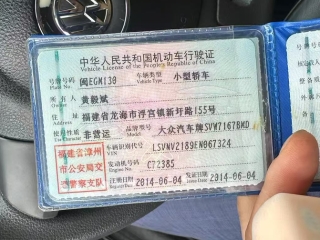 中华人民共和国机动车行驶证
Vehicle License of the People's Republic of China
号牌号码 闽EGM130 车辆类型 小型轿车
Plate No. Vehicle Type
所有人 黄毅斌
Owner
住址 福建省龙海市浮宫镇新圩路155号
Address
使用性质 非营运 品牌型号 大众汽车牌SVW7167BMD
Use Character Model
福建省漳州
市公安局交
警察支队
车辆识别代号 LSVNV2189EN067324
VIN
发动机号码 C72385
Engine No.
注册日期 2014-06-04 发证日期 2014-06-04
Register Date Issue Date